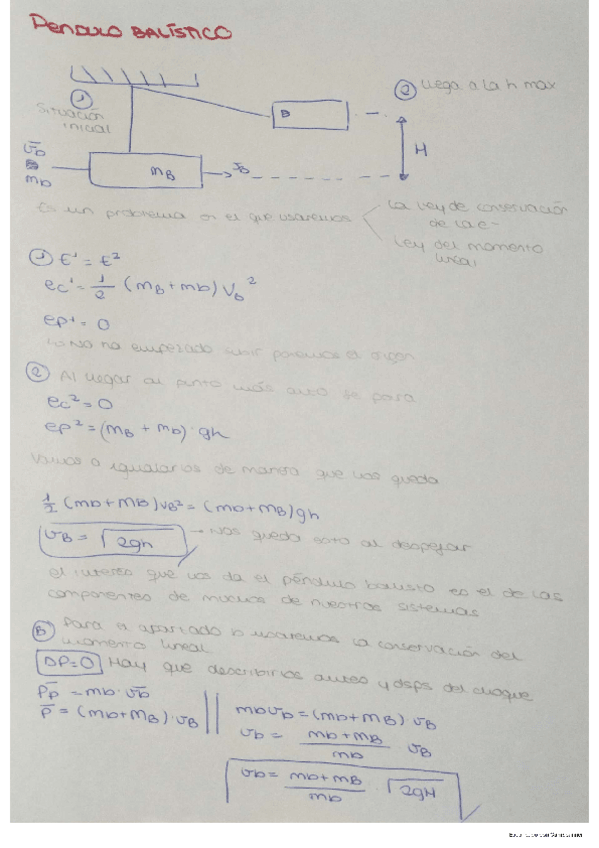 PENDULO BALÍSTICO
② llega a la h max
①
Situación
inicial
H
v̅b
mb
mB
v̅B
Es un problema en el que usaremos
La ley de conservación
de la e-
Ley del momento
lineal
① E¹ = E²
ec¹ = 1/2 (mB + mb) VB²
ep¹ = 0
No ha empezado subir ponemos el origen
② Al llegar al punto más alto se para
ec² = 0
ep² = (mB + mb) · gh
Vamos a igualarlos de manera que nos queda
1/2 (mb + mB) vB² = (mb + mB) gh
vB = √2gh → Nos queda esto al despejar
el interés que nos da el péndulo balisto es el de las
componentes de muchos de nuestros sistemas
ⓑ Para el apartado b usaremos la conservación del
momento lineal
DP=0 Hay que describirlos antes y dsps del choque
P̅p = mb · v̅b
p̅ = (mb + mB) · vB
mbvb = (mb + mB) · vB
vb = mb + mB / mb vB
vb = mb + mB / mb · √2gH